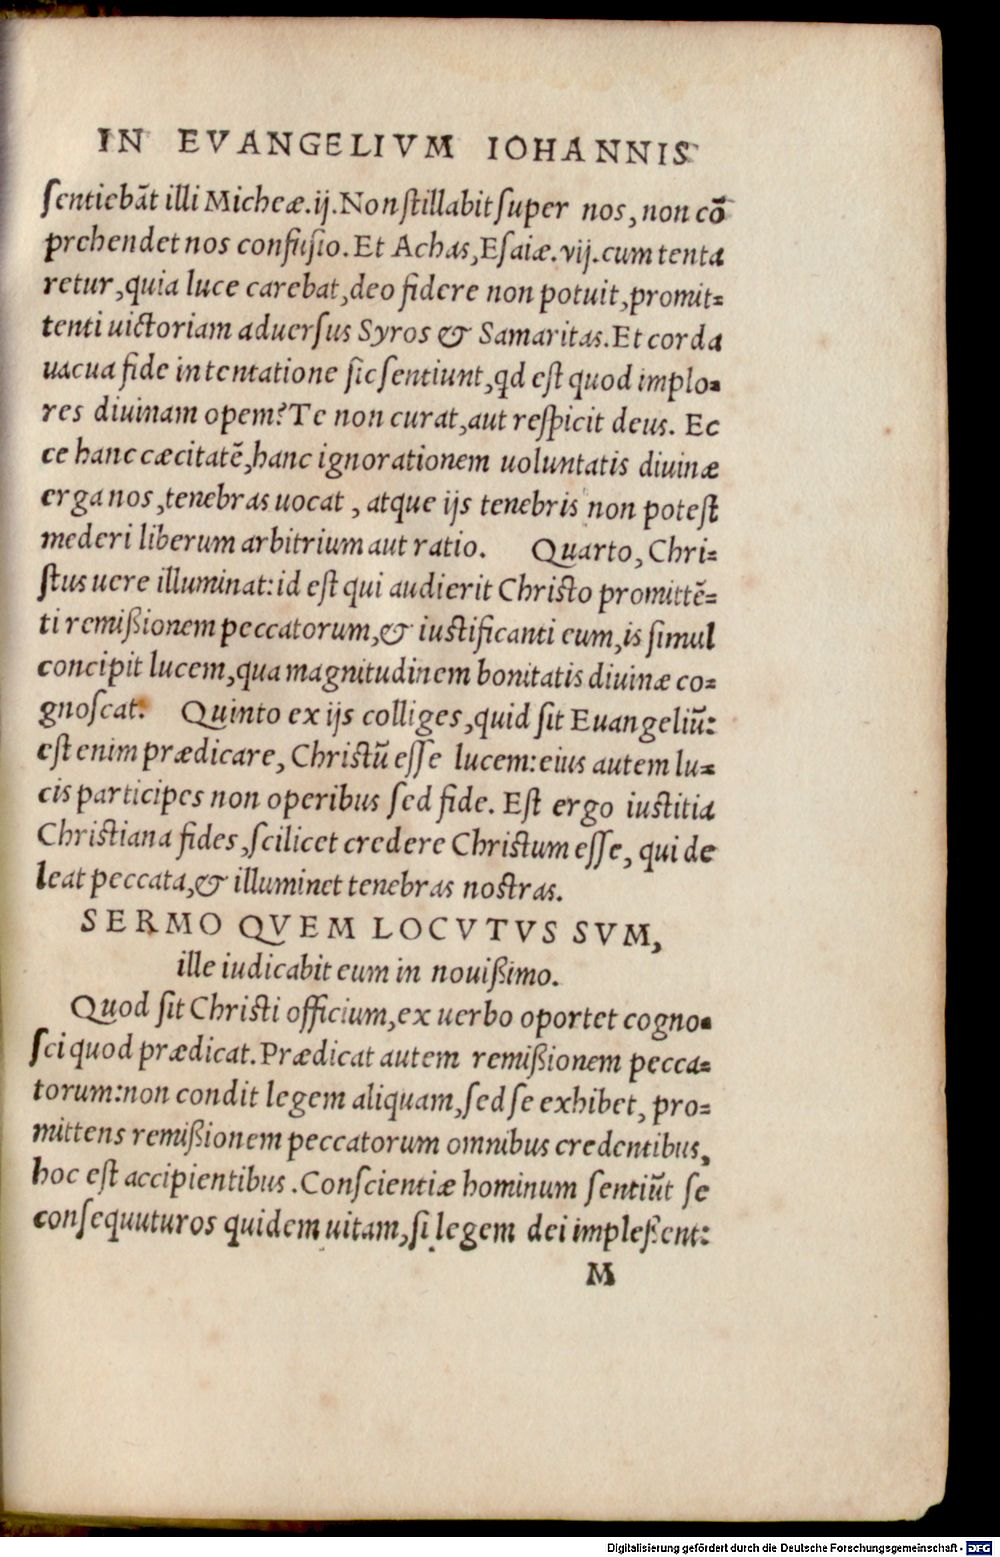 IN EVANGELIVM IOHANNIS
ſentiebāt illi Micheæ.ij.Non ſtillabit ſuper nos, non cō
prehendet nos confuſio. Et Achas, Eſaiæ.vij.cum tenta
retur, quia luce carebat, deo fidere non potuit, promit=
tenti uictoriam aduerſus Syros & Samaritas. Et corda
uacua fide in tentatione ſic ſentiunt, qd eſt quod implo=
res diuinam opem? Te non curat, aut reſpicit deus. Ec
ce hanc cæcitatē, hanc ignorationem uoluntatis diuinæ
erga nos, tenebras uocat, atque ijs tenebris non poteſt
mederi liberum arbitrium aut ratio. Quarto, Chri=
ſtus uere illuminat: id eſt qui audierit Chriſto promittē=
ti remißionem peccatorum, & iuſtificanti eum, is ſimul
concipit lucem, qua magnitudinem bonitatis diuinæ co=
gnoſcat. Quinto ex ijs colliges, quid ſit Euangeliū:
eſt enim prædicare, Chriſtū eſſe lucem: eius autem lu=
cis participes non operibus ſed fide. Eſt ergo iuſtitia
Chriſtiana fides, ſcilicet credere Chriſtum eſſe, qui de
leat peccata, & illuminet tenebras noſtras.
SERMO QVEM LOCVTVS SVM,
ille iudicabit eum in nouißimo.
Quod ſit Chriſti officium, ex uerbo oportet cogno=
ſci quod prædicat. Prædicat autem remißionem pecca=
torum: non condit legem aliquam, ſed ſe exhibet, pro=
mittens remißionem peccatorum omnibus credentibus,
hoc eſt accipientibus. Conſcientiæ hominum ſentiūt ſe
conſequuturos quidem uitam, ſi legem dei impleßent:
M
Digitalisierung gefördert durch die Deutsche Forschungsgemeinschaft - DFG